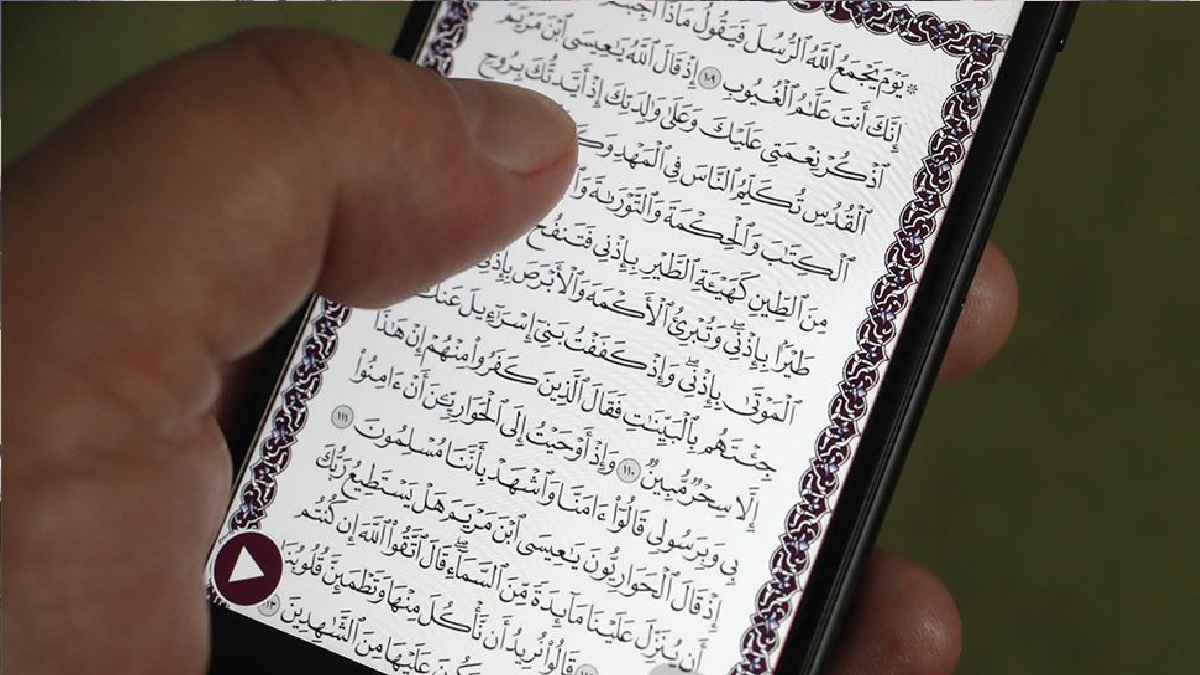 ۞ يَوْمَ يَجْمَعُ ٱللَّهُ ٱلرُّسُلَ فَيَقُولُ مَاذَآ أُجِبْتُمْ
إِنَّكَ أَنتَ عَلَّٰمُ ٱلْغُيُوبِ ١٠٩ إِذْ قَالَ ٱللَّهُ يَٰعِيسَى ٱبْنَ مَرْيَمَ
ٱذْكُرْ نِعْمَتِى عَلَيْكَ وَعَلَىٰ وَٰلِدَتِكَ إِذْ أَيَّدتُّكَ بِرُوحِ
ٱلْقُدُسِ تُكَلِّمُ ٱلنَّاسَ فِى ٱلْمَهْدِ
ٱلْكِتَٰبَ وَٱلْحِكْمَةَ وَٱلتَّوْرَىٰةَ
مِنَ ٱلطِّينِ كَهَيْـَٔةِ ٱلطَّيْرِ بِإِذْنِى فَتَنفُخُ
طَيْرًۢا بِإِذْنِى ۖ وَتُبْرِئُ ٱلْأَكْمَهَ وَٱلْأَبْرَصَ بِإِذْنِى
ٱلْمَوْتَىٰ بِإِذْنِى ۖ وَإِذْ كَفَفْتُ بَنِىٓ إِسْرَٰٓءِيلَ عَنكَ
جِئْتَهُم بِٱلْبَيِّنَٰتِ فَقَالَ ٱلَّذِينَ كَفَرُوا۟ مِنْهُمْ إِنْ هَٰذَآ
إِلَّا سِحْرٌ مُّبِينٌ ١١٠ وَإِذْ أَوْحَيْتُ إِلَى ٱلْحَوَارِيِّـۧنَ أَنْ ءَامِنُوا۟
بِى وَبِرَسُولِى قَالُوٓا۟ ءَامَنَّا وَٱشْهَدْ بِأَنَّنَا مُسْلِمُونَ ١١١
إِذْ قَالَ ٱلْحَوَارِيُّونَ يَٰعِيسَى ٱبْنَ مَرْيَمَ هَلْ يَسْتَطِيعُ رَبُّكَ
أَن يُنَزِّلَ عَلَيْنَا مَآئِدَةً مِّنَ ٱلسَّمَآءِ ۖ قَالَ ٱتَّقُوا۟ ٱللَّهَ إِن كُنتُم
قَالُوا۟ نُرِيدُ أَن نَّأْكُلَ مِنْهَا وَتَطْمَئِنَّ قُلُوبُنَا
عَلَيْهَا مِنَ ٱلشَّٰهِدِينَ ١١٣